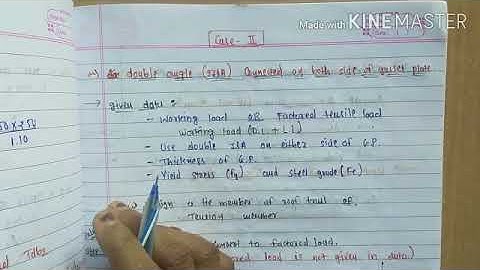 Made with KINEMASTER
Case - II
double angle (2ISA) Connected on both side of gusset plate
→ given data :-
50 x 250
1.10
- Working load OR Factored tensile load
working load (D.L + L.L)
- Use double ISA on either side of G.P.
- Thickness of G.P.
- Yield stress (fy) and steel grade (Fe)
sign a tie member of roof truss OR
Tension member
to factored load.
load is not given in data.)
Tdb